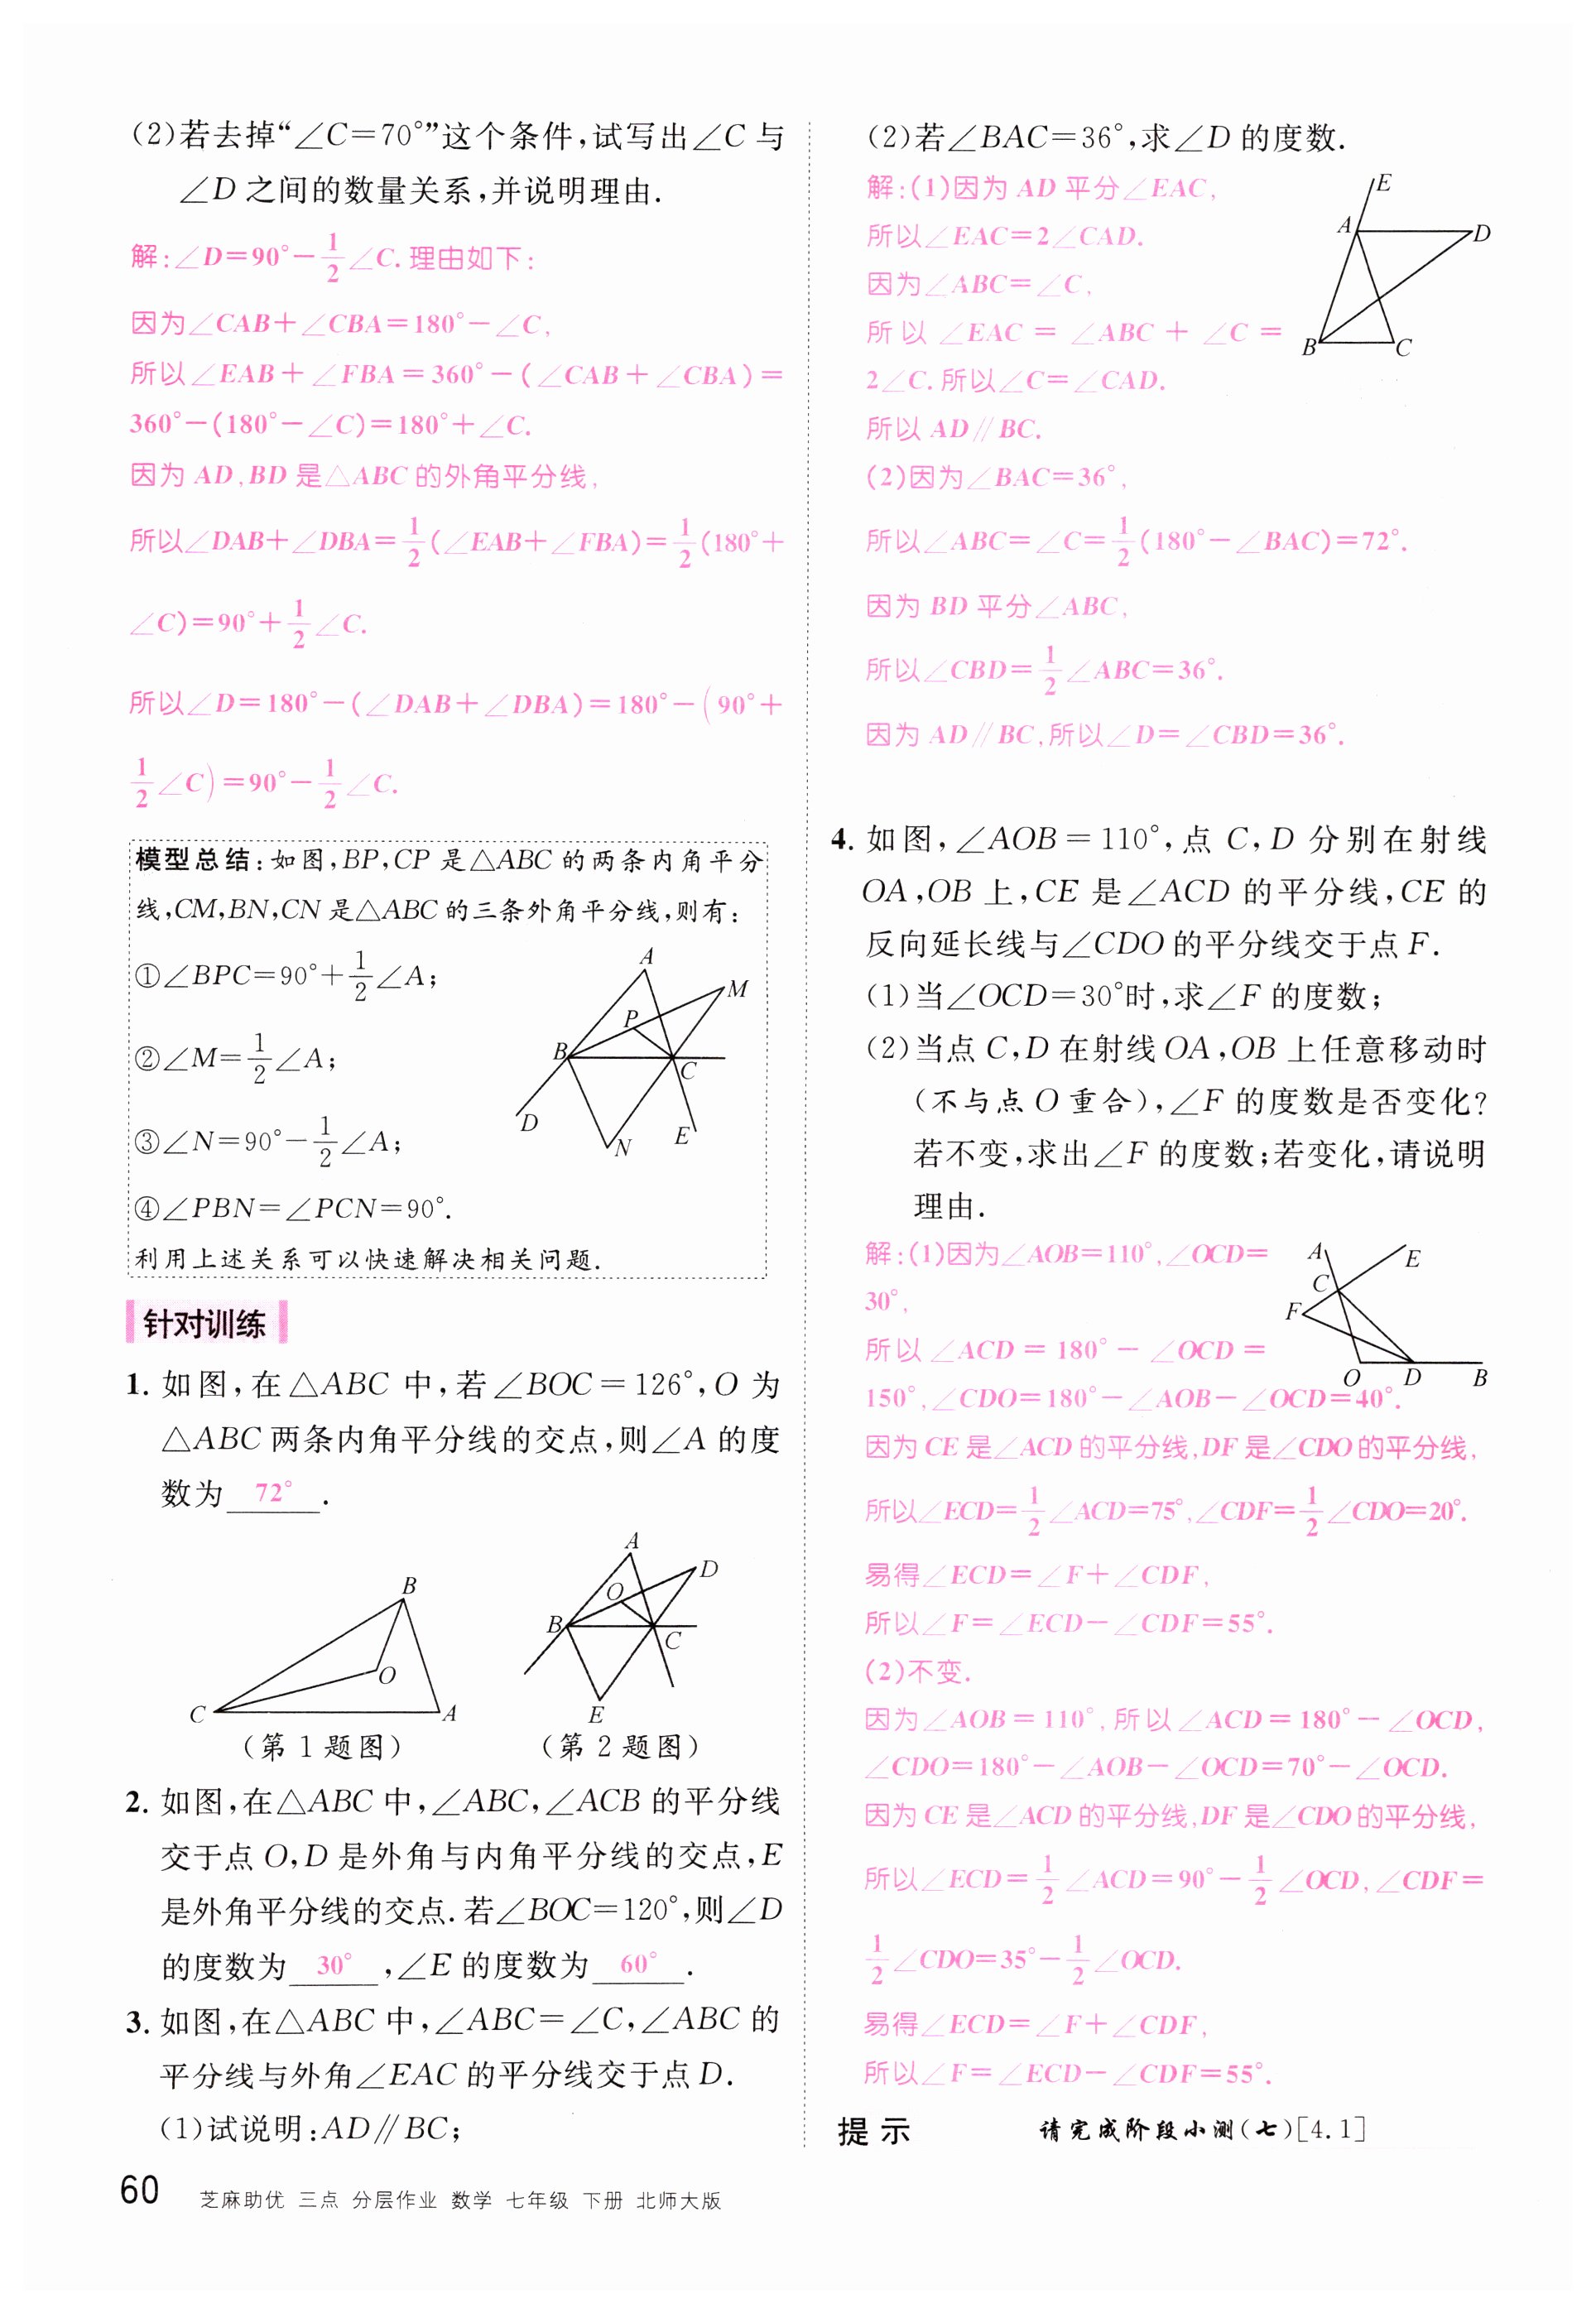 (2)若去掉“∠C=70°”这个条件,试写出∠C与
∠D之间的数量关系,并说明理由.
解:∠D=90°-1/2∠C.理由如下:
因为∠CAB+∠CBA=180°-∠C,
所以∠EAB+∠FBA=360°-(∠CAB+∠CBA)=
360°-(180°-∠C)=180°+∠C.
因为AD,BD是△ABC的外角平分线,
所以∠DAB+∠DBA=1/2(∠EAB+∠FBA)=1/2(180°+
∠C)=90°+1/2∠C.
所以∠D=180°-(∠DAB+∠DBA)=180°-(90°+
1/2∠C)=90°-1/2∠C.
模型总结:如图,BP,CP是△ABC的两条内角平分
线,CM,BN,CN是△ABC的三条外角平分线,则有:
①∠BPC=90°+1/2∠A;
②∠M=1/2∠A;
③∠N=90°-1/2∠A;
④∠PBN=∠PCN=90°.
A
M
P
B
C
D
N
E
利用上述关系可以快速解决相关问题.
针对训练
1. 如图,在△ABC中,若∠BOC=126°,O为
△ABC两条内角平分线的交点,则∠A的度
数为 72° .
B
O
C
A
(第1题图)
A
D
O
B
C
E
(第2题图)
2. 如图,在△ABC中,∠ABC,∠ACB的平分线
交于点O,D是外角与内角平分线的交点,E
是外角平分线的交点.若∠BOC=120°,则∠D
的度数为 30° ,∠E的度数为 60° .
3. 如图,在△ABC中,∠ABC=∠C,∠ABC的
平分线与外角∠EAC的平分线交于点D.
(1)试说明:AD∥BC;
(2)若∠BAC=36°,求∠D的度数.
解:(1)因为AD平分∠EAC,
所以∠EAC=2∠CAD.
因为∠ABC=∠C,
所以∠EAC=∠ABC+∠C=
2∠C.所以∠C=∠CAD.
所以AD∥BC.
E
A
D
B
C
(2)因为∠BAC=36°,
所以∠ABC=∠C=1/2(180°-∠BAC)=72°.
因为BD平分∠ABC,
所以∠CBD=1/2∠ABC=36°.
因为AD∥BC,所以∠D=∠CBD=36°.
4. 如图,∠AOB=110°,点C,D分别在射线
OA,OB上,CE是∠ACD的平分线,CE的
反向延长线与∠CDO的平分线交于点F.
(1)当∠OCD=30°时,求∠F的度数;
(2)当点C,D在射线OA,OB上任意移动时
(不与点O重合),∠F的度数是否变化?
若不变,求出∠F的度数;若变化,请说明
理由.
解:(1)因为∠AOB=110°,∠OCD=
30°,
所以∠ACD=180°-∠OCD=
150°,∠CDO=180°-∠AOB-∠OCD=40°.
A
E
C
F
O
D
B
因为CE是∠ACD的平分线,DF是∠CDO的平分线,
所以∠ECD=1/2∠ACD=75°,∠CDF=1/2∠CDO=20°.
易得∠ECD=∠F+∠CDF,
所以∠F=∠ECD-∠CDF=55°.
(2)不变.
因为∠AOB=110°,所以∠ACD=180°-∠OCD,
∠CDO=180°-∠AOB-∠OCD=70°-∠OCD.
因为CE是∠ACD的平分线,DF是∠CDO的平分线,
所以∠ECD=1/2∠ACD=90°-1/2∠OCD,∠CDF=
1/2∠CDO=35°-1/2∠OCD.
易得∠ECD=∠F+∠CDF,
所以∠F=∠ECD-∠CDF=55°.
提示 请完成阶段小测(七)[4.1]
60 芝麻助优 三点 分层作业 数学 七年级 下册 北师大版